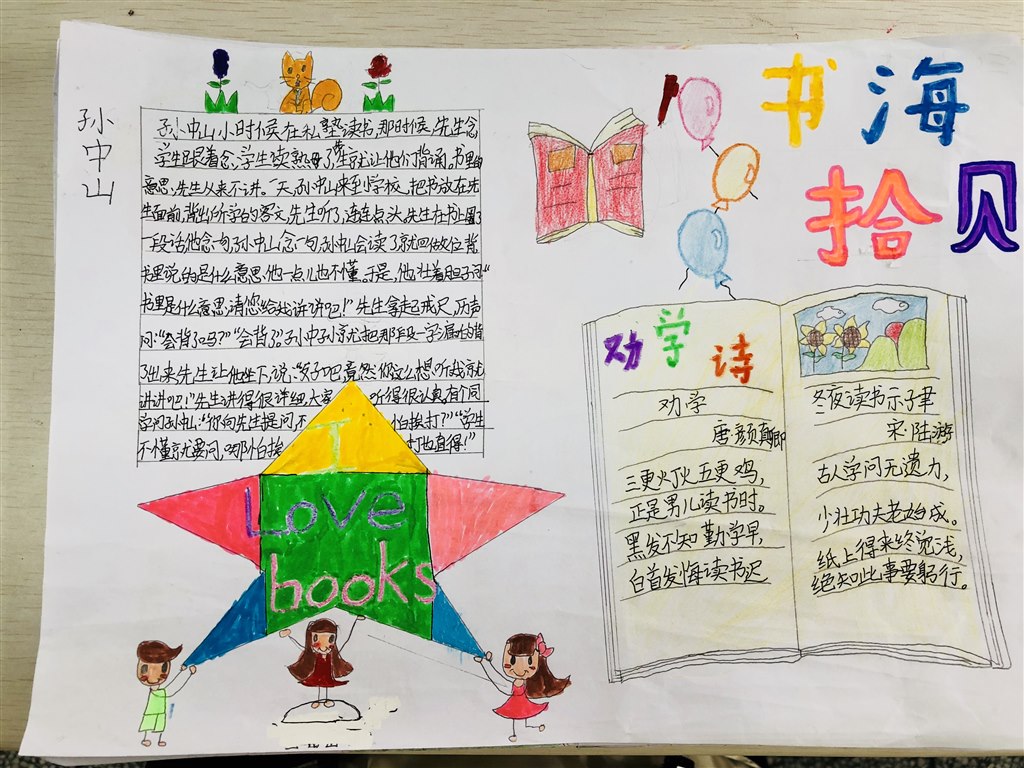 书海
拾贝
孙中山
孙中山小时候在私塾读书,那时候,先生念
学生跟着念,学生读熟
意思,先生从来不讲。一天,孙中山来到学校,把书放在先
生面前,背出所学的
先生听了,连连点头,先生在书上圈了
一段话他念一句孙中山念一句孙中山会读了就回
书里说的是什么意思,他一点儿也不懂。于是,他壮着胆子问“
书里是什么意思,请您给我讲讲吧!”先生拿起戒尺,厉声
问:“会背了吗?”“会背了”
了出来先生让他坐下说:
讲讲吧!”先生讲得很详细,大家
听得很认真,有个同
学问孙中山:“你向先生提问不
怕挨打?”“学生
不懂就要问,
挨
打也值得!”
I
Love
books
劝学诗
劝学
唐·颜真卿
三更灯火五更鸡,
正是男儿读书时。
黑发不知勤学早,
白首发悔读书迟
冬夜读书示子聿
宋·陆游
古人学问无遗力,
少壮功夫老始成。
纸上得来终觉浅,
绝知此事要躬行。